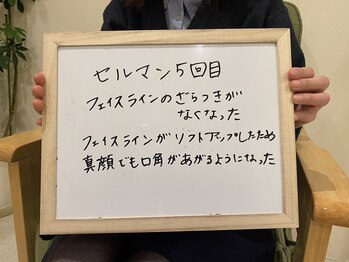 セルマン5回目
フェイスラインのざらつきが
なくなった
フェイスラインがリフトアップしたため
真顔でも口角があがるようになった